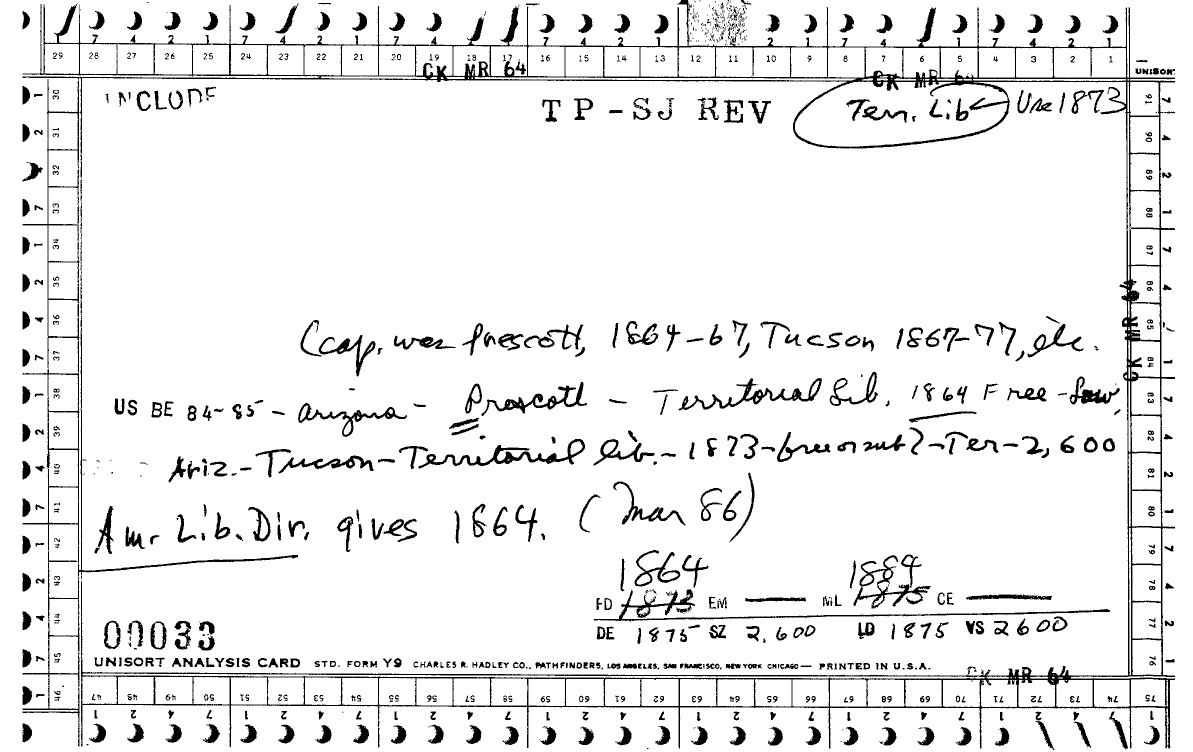 7 4 2 1 7 4 2 1 7 4 2 1 7 4 2 1 2 1 7 4 2 1 7 4 2 1
29 28 27 26 25 24 23 22 21 20 19 18 17 16 15 14 13 12 11 10 9 8 7 6 5 4 3 2 1
CK MR 64 CK MR 64 UNISORT
INCLUDE TP-SJ REV Terr. Lib Use 1873
(cap. was Prescott, 1864-67, Tucson 1867-77, etc.
US BE 84-85 - Arizona - Prescott - Territorial Lib. 1864 Free - Law,
Ariz. - Tucson - Territorial lib. - 1873 - free or sub? - Ter - 2,600
Am. Lib. Dir. gives 1864. (Mar 86)
1864 1884
FD 1873 EM — ML 1875 CE —
DE 1875 SZ 2,600 LD 1875 VS 2600
00033
UNISORT ANALYSIS CARD STD. FORM Y9 CHARLES R. HADLEY CO., PATHFINDERS, LOS ANGELES, SAN FRANCISCO, NEW YORK CHICAGO — PRINTED IN U.S.A.
CK MR 64
CK MR 64
30 31 32 33 34 35 36 37 38 39 40 41 42 43 44 45 46
91 90 89 88 87 86 85 84 83 82 81 80 79 78 77 76 75
47 48 49 50 51 52 53 54 55 56 57 58 59 60 61 62 63 64 65 66 67 68 69 70 71 72 73 74